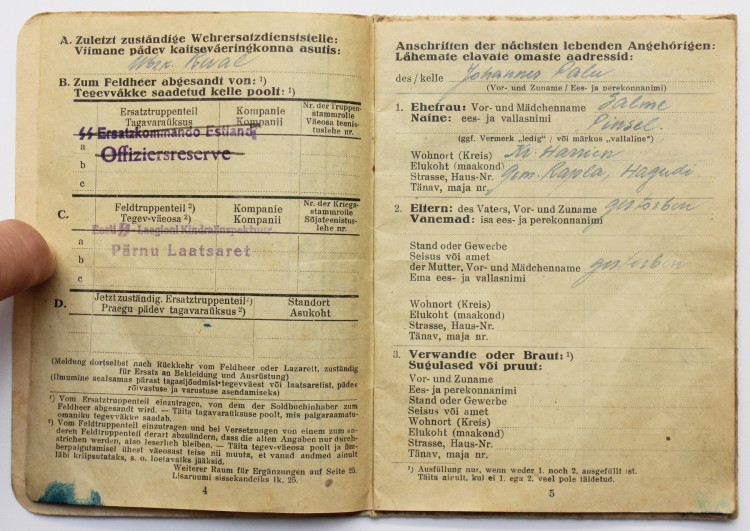 A. Zuletzt zuständige Wehrersatzdienststelle:
Viimane pädev kaitseväeringkonna asutis:
Reval
B. Zum Feldheer abgesandt von: ¹)
Tegevväkke saadetud kelle poolt: ¹)
Ersatztruppenteil
Tagavaraüksus
Kompanie
Kompanii
Nr. der Truppen-
stammrolle
Väeosa temis-
tuslehe nr.
Ersatzkommando Estland
a
Offiziersreserve
b
c
C.
Feldtruppenteil ²)
Tegev-väeosa ²)
Kompanie
Kompanii
Nr. der Kriegs-
stammrolle
Sõjateenistus-
lehe nr.
Eesti Leegioni Kindralinspektuur
a
Pärnu Laatsaret
b
c
D.
Jetzt zuständig. Ersatztruppenteil ²)
Praegu pädev tagavaraüksus ²)
Standort
Asukoht
(Meldung dortselbst nach Rückkehr vom Feldheer oder Lazarett, zuständig
für Ersatz an Bekleidung und Ausrüstung)
(Ilmumine sealsamas pärast tagasijõudmist tegevväest või laatsaretist, pädev
rõivastuse ja varustuse asendamiseks)
¹) Vom Ersatztruppenteil einzutragen, von dem der Soldbuchinhaber zum
Feldheer abgesandt wird. — Täita tagavaraüksuse poolt, mis palgaraamatu-
omaniku tegevväkke saadab.
²) Vom Feldtruppenteil einzutragen und bei Versetzungen von einem zum an-
deren Feldtruppenteil derart abzuändern, dass die alten Angaben nur durch-
strichen werden, also leserlich bleiben. — Täita tegev-väeosa poolt ja üm-
berpaigutamisel ühest väeosast teise nii muuta, et vanad andmed ainult
läbi kriipsutataks, s. o. loetavaks jääksid.
Weiterer Raum für Ergänzungen auf Seite 25.
Lisaruumi sissekandeiks lk. 25.
4
Anschriften der nächsten lebenden Angehörigen:
Lähemate elavate omaste aadressid:
des / kelle Johannes Palu
(Vor- und Zuname / Ees- ja perekonnanimi)
1. Ehefrau: Vor- und Mädchenname Salme
Naine: ees- ja vallasnimi Pinsel.
(ggf. Vermerk „ledig" / või märkus „vallaline")
Wohnort (Kreis) Kr. Harrien
Elukoht (maakond)
Strasse, Haus-Nr. Gem. Rapla, Hagudi
Tänav, maja nr.
2. Eltern: des Vaters, Vor- und Zuname gestorben
Vanemad: isa ees- ja perekonnanimi
Stand oder Gewerbe
Seisus või amet
der Mutter, Vor- und Mädchenname gestorben
Ema ees- ja vallasnimi
Wohnort (Kreis)
Elukoht (maakond)
Strasse, Haus-Nr.
Tänav, maja nr.
3. Verwandte oder Braut: ¹)
Sugulased või pruut:
Vor- und Zuname
Ees- ja perekonnanimi
Stand oder Gewerbe
Seisus või amet
Wohnort (Kreis)
Elukoht (maakond)
Strasse, Haus-Nr.
Tänav, maja nr.
¹) Ausfüllung nur, wenn weder 1. noch 2. ausgefüllt ist.
Täita ainult, kui ei 1. ega 2. veel pole täidetud.
5